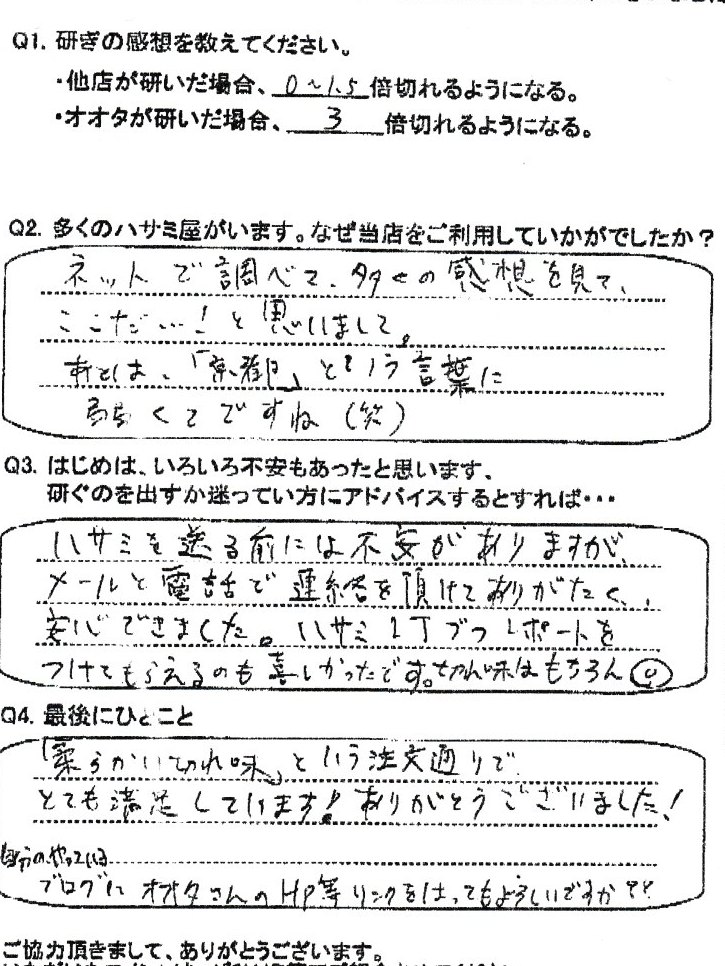 Q1. 研ぎの感想を教えてください。
・他店が研いだ場合、0〜1.5倍切れるようになる。
・オオタが研いだ場合、3倍切れるようになる。
Q2. 多くのハサミ屋がいます。なぜ当店をご利用していかがでしたか?
ネットで調べて、多々の感想を見て、
ここだ…!と思いまして。
あとは、「京都」という言葉に
弱くてですね(笑)
Q3. はじめは、いろいろ不安もあったと思います、
研ぐのを出すか迷ってい方にアドバイスするとすれば・・・
ハサミを送る前には不安がありますが、
メールと電話で連絡を頂けてありがたく、
安心できました。ハサミ1丁ずつレポートを
つけてもらえるのも喜しかったです。切れ味はもちろん◎
Q4. 最後にひとこと
「柔らかい切れ味」という注文通りで
とても満足しています!ありがとうございました!
自分のやっている
ブログに オオタさんのHP等リンクをはってもよろしいですか??
ご協力頂きまして、ありがとうございます。